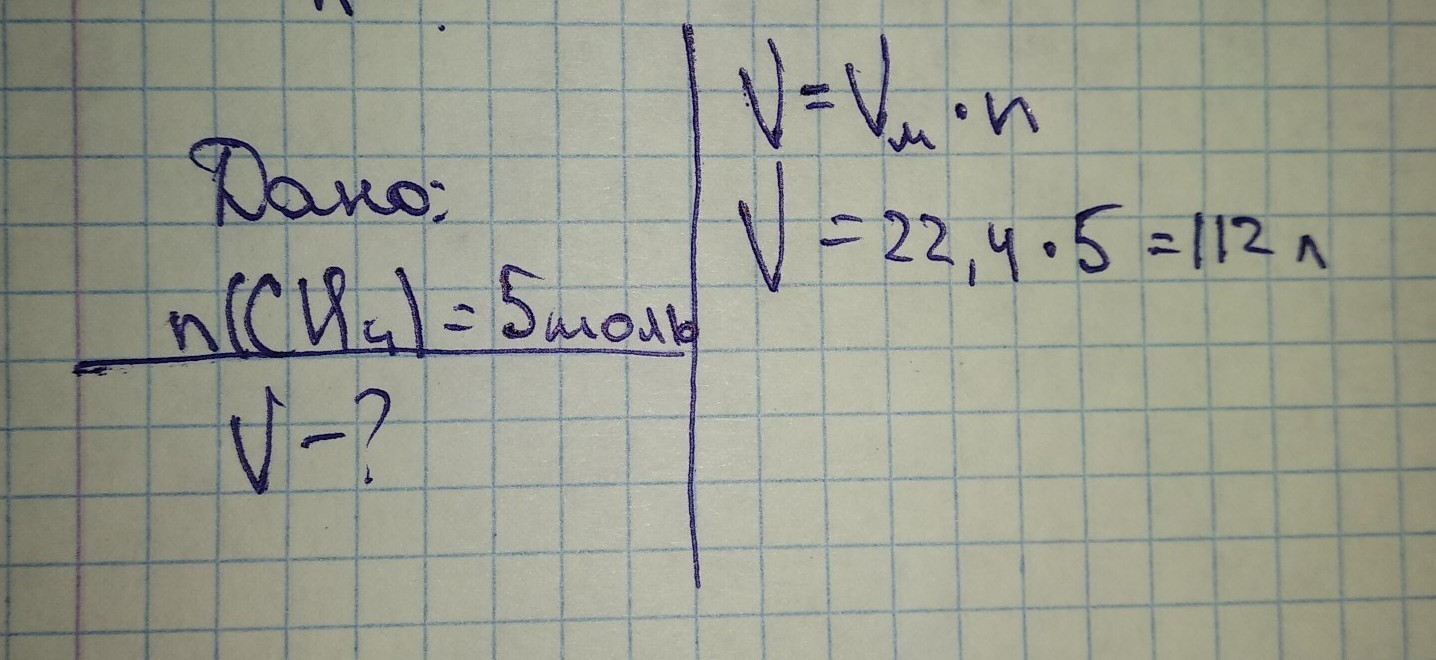 Дано:
n(CH₄) = 5 моль
V - ?
V = Vм · n
V = 22,4 · 5 = 112 л